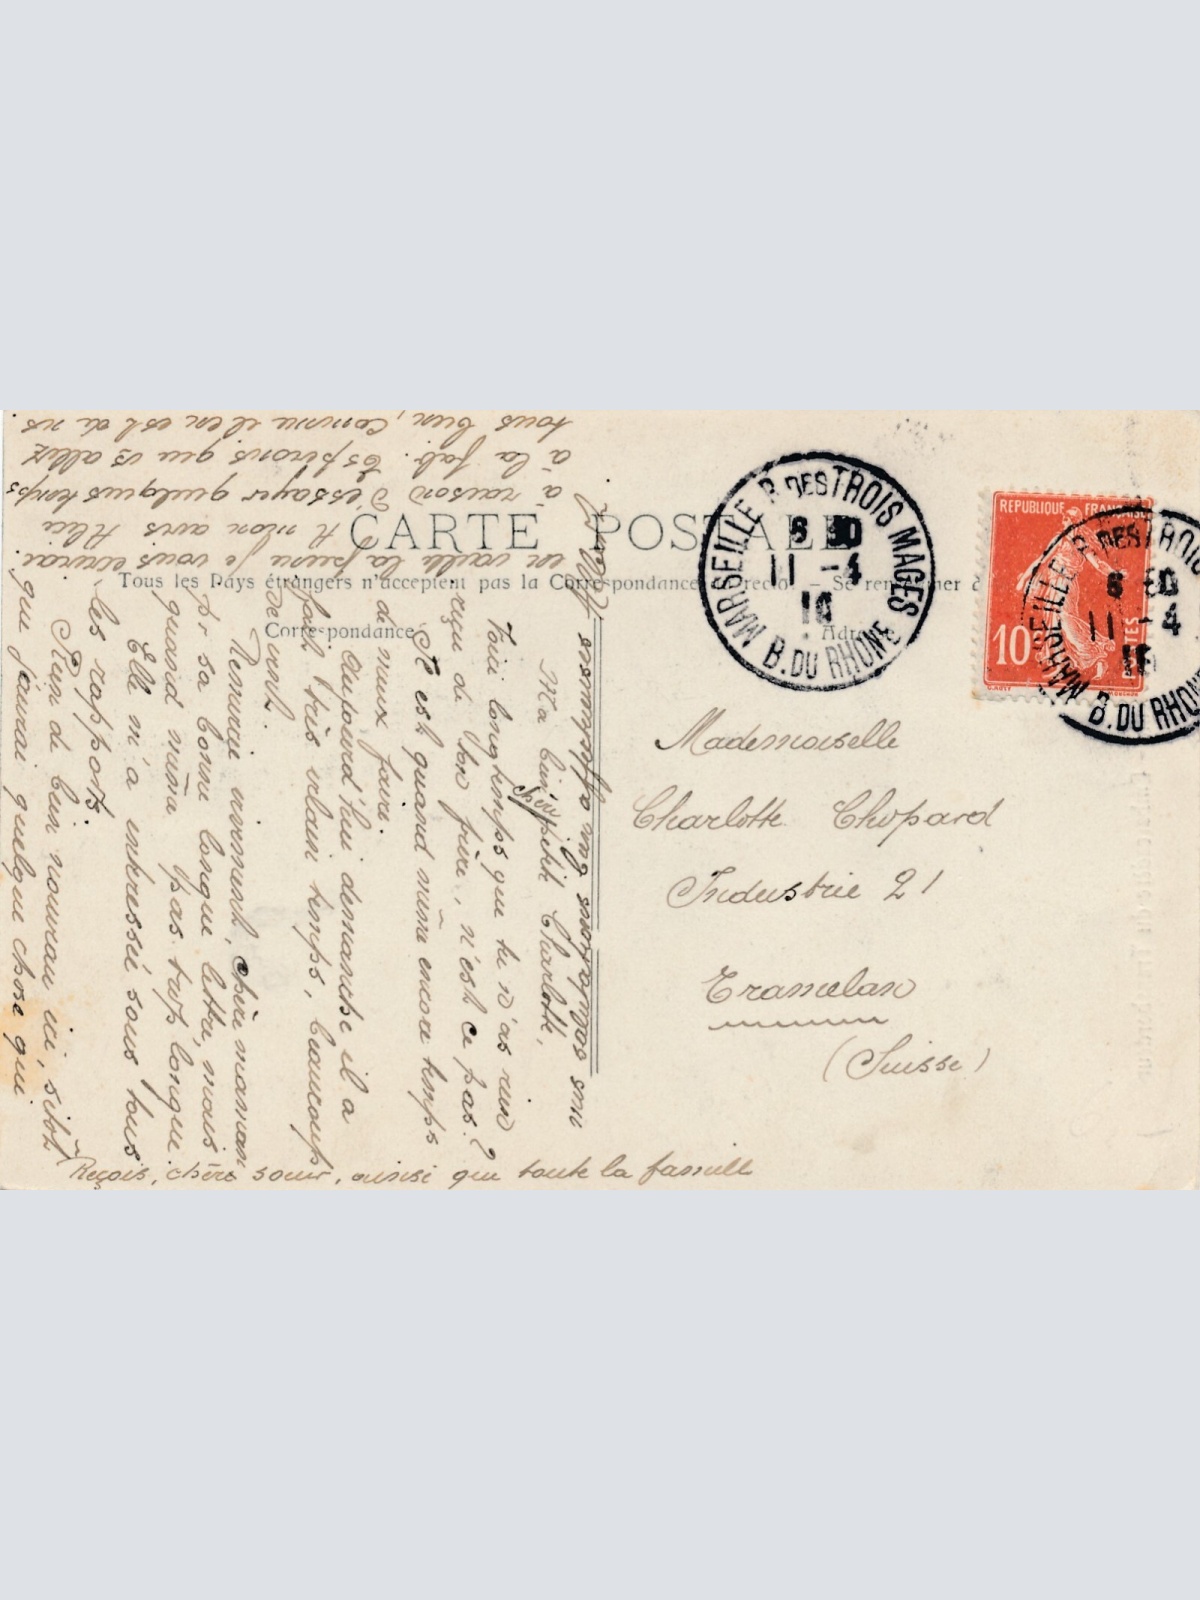 CARTE POSTALE
Tous les Pays étrangers n'acceptent pas la Correspondance Recto. – Se renseigner à
Correspondance
Adresse
MARSEILLE R. DES TROIS MAGES
6 30
11 - 4
B. DU RHONE
REPUBLIQUE FRANÇAISE
10
POSTES
MARSEILLE R. DES TROIS
6 30
11 - 4
B. DU RHONE
Mademoiselle
Charlotte Chopard
Industrie 21
Tramelan
(Suisse)
Ma bien chère petite Charlotte,
Voici longtemps que tu n'as rien
reçu de ton frère, n'est ce pas?
Il est quand même encore temps
de mieux faire.
Aujourd'hui dimanche il a
fait très vilain temps, beaucoup
de vent.
Remercie vivement, chère maman
pr sa bonne longue lettre, mais
quand même pas trop longue
Elle m'a intéressé sous tous
les rapports.
Rien de bien nouveau ici, sitôt
que j'aurai quelque chose qui
en vaille la peine je vous écrirai
A mon avis Alice
à raison d'essayer quelques temps
à la fab. Espérons que vs allez
tous bien, comme il en est de ns
Reçois, chère soeur, ainsi que toute la famille
mes salutations bien affectueuses